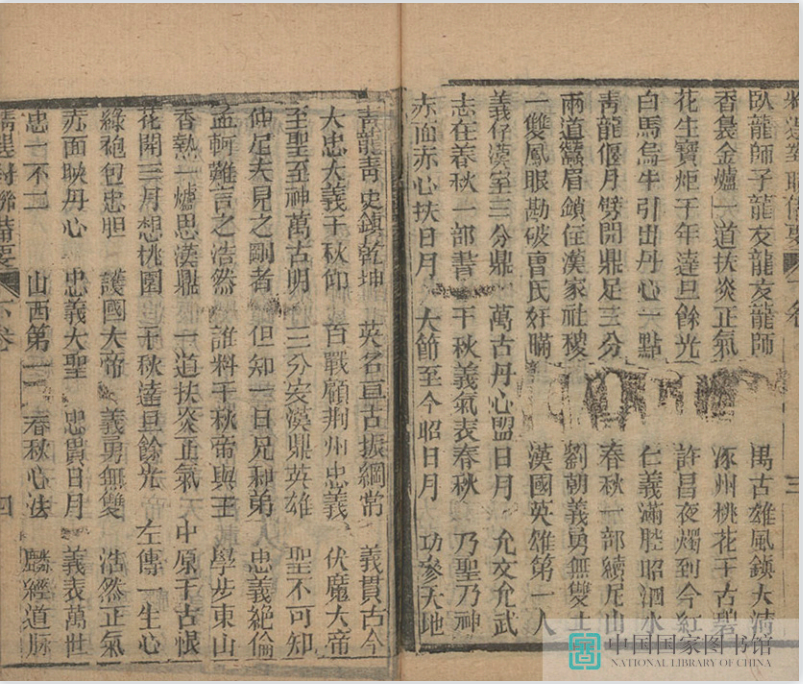 臥龍師子龍友龍友龍師　萬古雄風鎮大清
香裊金爐一道扶炎正氣　涿州桃花千古聖
花生寶炬千年達旦餘光　許昌夜燭到今紅
白馬烏牛引出丹心一點　仁義滿腔昭泗水
青龍偃月劈開鼎足三分　春秋一部續尼山
兩道蠶眉鎖住漢家社稷　劉朝義勇無雙士
一雙鳳眼勘破曹氏奸瞞　漢國英雄第一人
義存漢室三分鼎　萬古丹心盟日月　允文允武
志在春秋一部書　千秋義氣表春秋　乃聖乃神
赤面赤心扶日月　大節至今昭日月　功參天地
青龍靑史鎮乾坤　英名亘古振綱常　義貫古今
大忠大義千秋仰　百戰顧荆州忠義　伏魔大帝
至聖至神萬古明　三分安漢鼎英雄　聖不可知
仲尼未見之剛者　但知一日兄和弟　忠義絕倫
孟軻難言之浩然　誰料千秋帝與王　學步東山
香熱一爐思漢鼎　一道扶炎正氣　中原千古恨
花開三月想桃園　千秋達旦餘光　左傳一生心
綠袍包忠胆　護國大帝　義勇無雙　浩然正氣
赤面映丹心　忠義大聖　忠貫日月　義表萬世
忠一不二　山西第一　春秋心法　麟經道脉
精選對聯備要　下卷　四
中国国家图书馆
NATIONAL LIBRARY OF CHINA